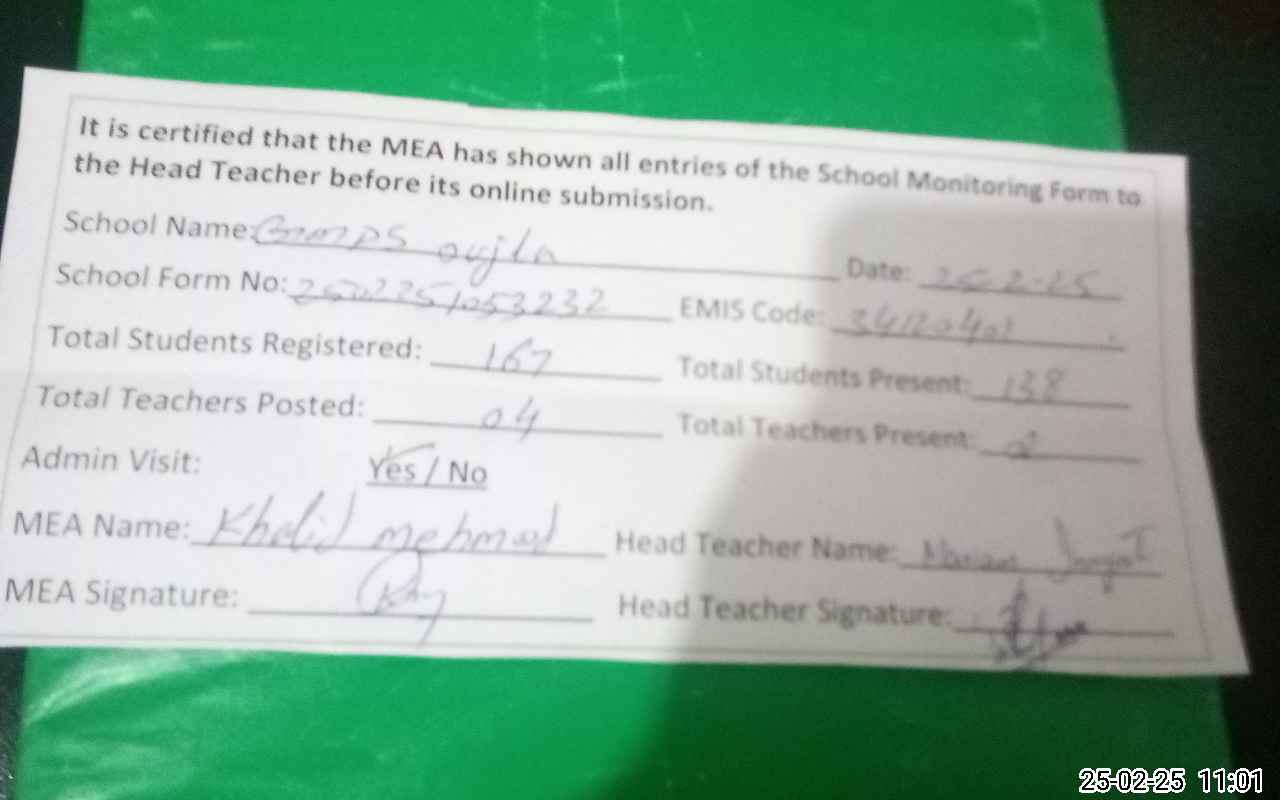 It is certified that the MEA has shown all entries of the School Monitoring Form to
the Head Teacher before its online submission.
School Name: GMMPS oujla Date: 25-2-25
School Form No: EMIS Code:
Total Students Registered: 167 Total Students Present: 138
Total Teachers Posted: 04 Total Teachers Present:
Admin Visit: Yes / No
MEA Name: Khalid mehmod Head Teacher Name:
MEA Signature: Head Teacher Signature:
25-02-25 11:01